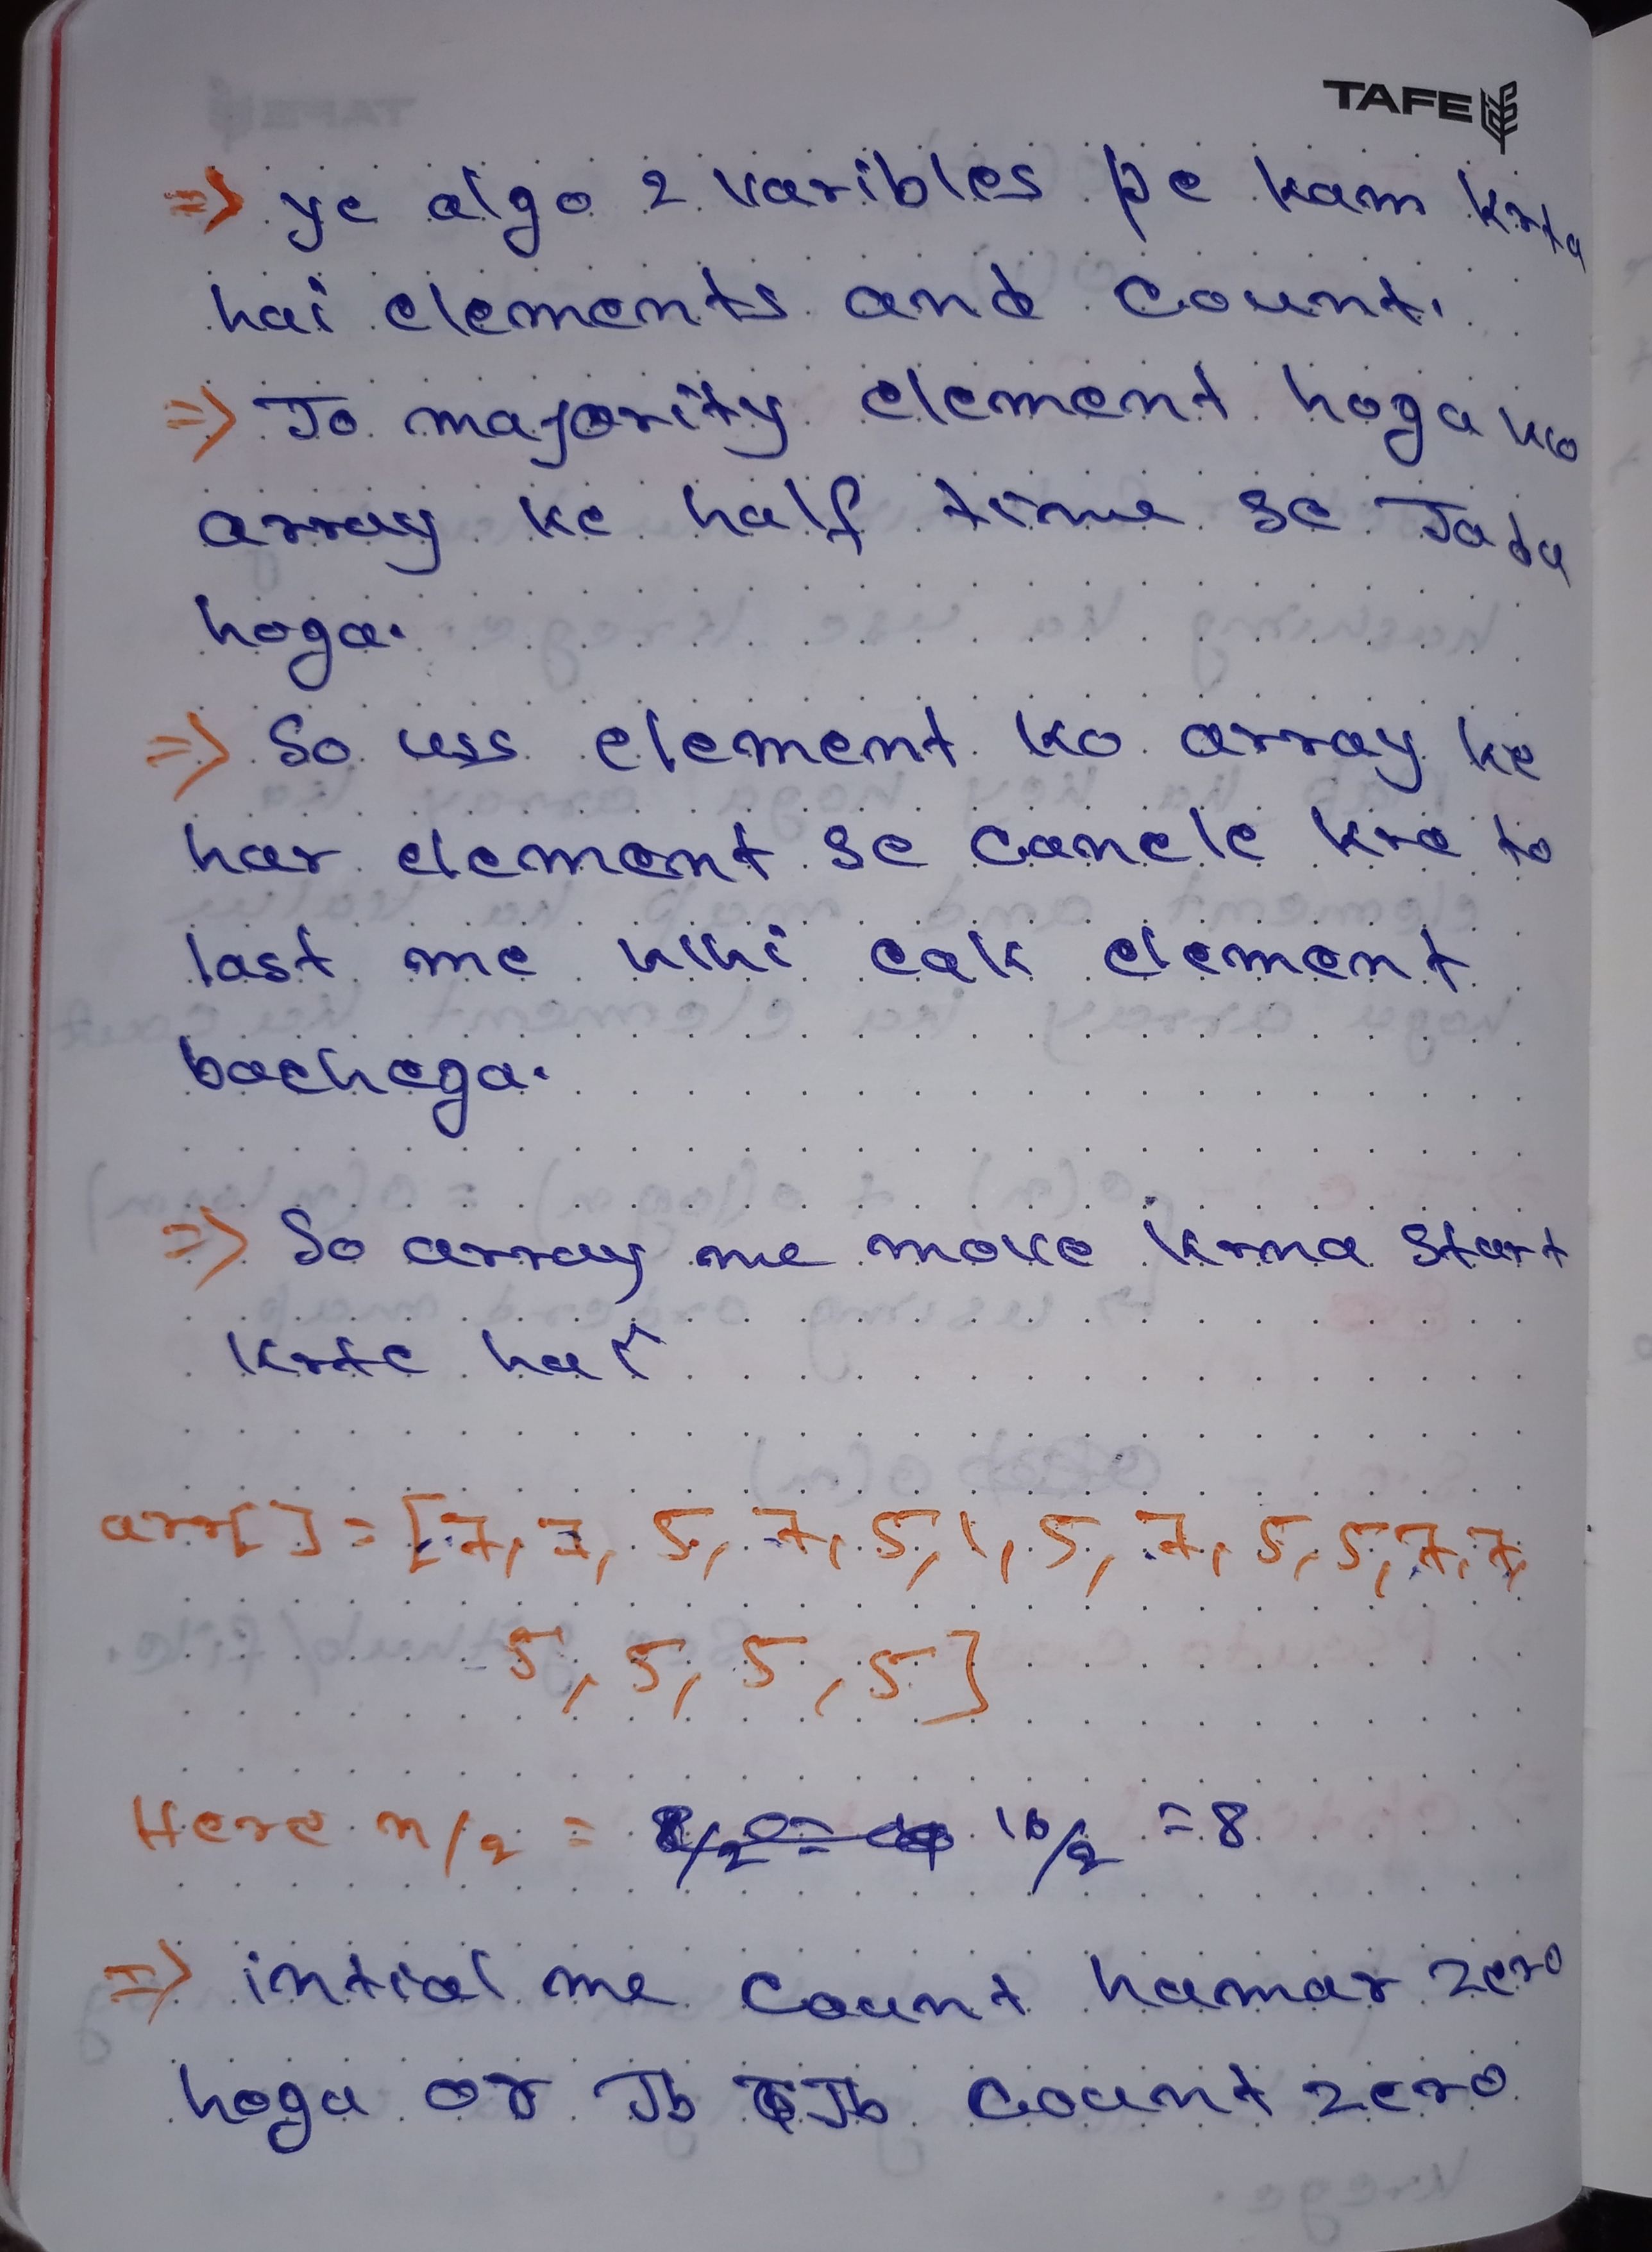 TAFE
=> ye algo 2 varibles pe kam krta
hai elements and count.
=> Jo majority element hoga wo
array ke half time se Jada
hoga.
=> So uss element ko array ke
har element se cancle kre to
last me whi eak element
bachega.
=> So array me move krna start
krte hai
arr[] = [7, 7, 5, 7, 5, 1, 5, 7, 5, 5, 7, 7,
5, 5, 5, 5]
Here n/2 = 16/2 = 8
=> intial me count hamar zero
hoga or Jb Jb count zero